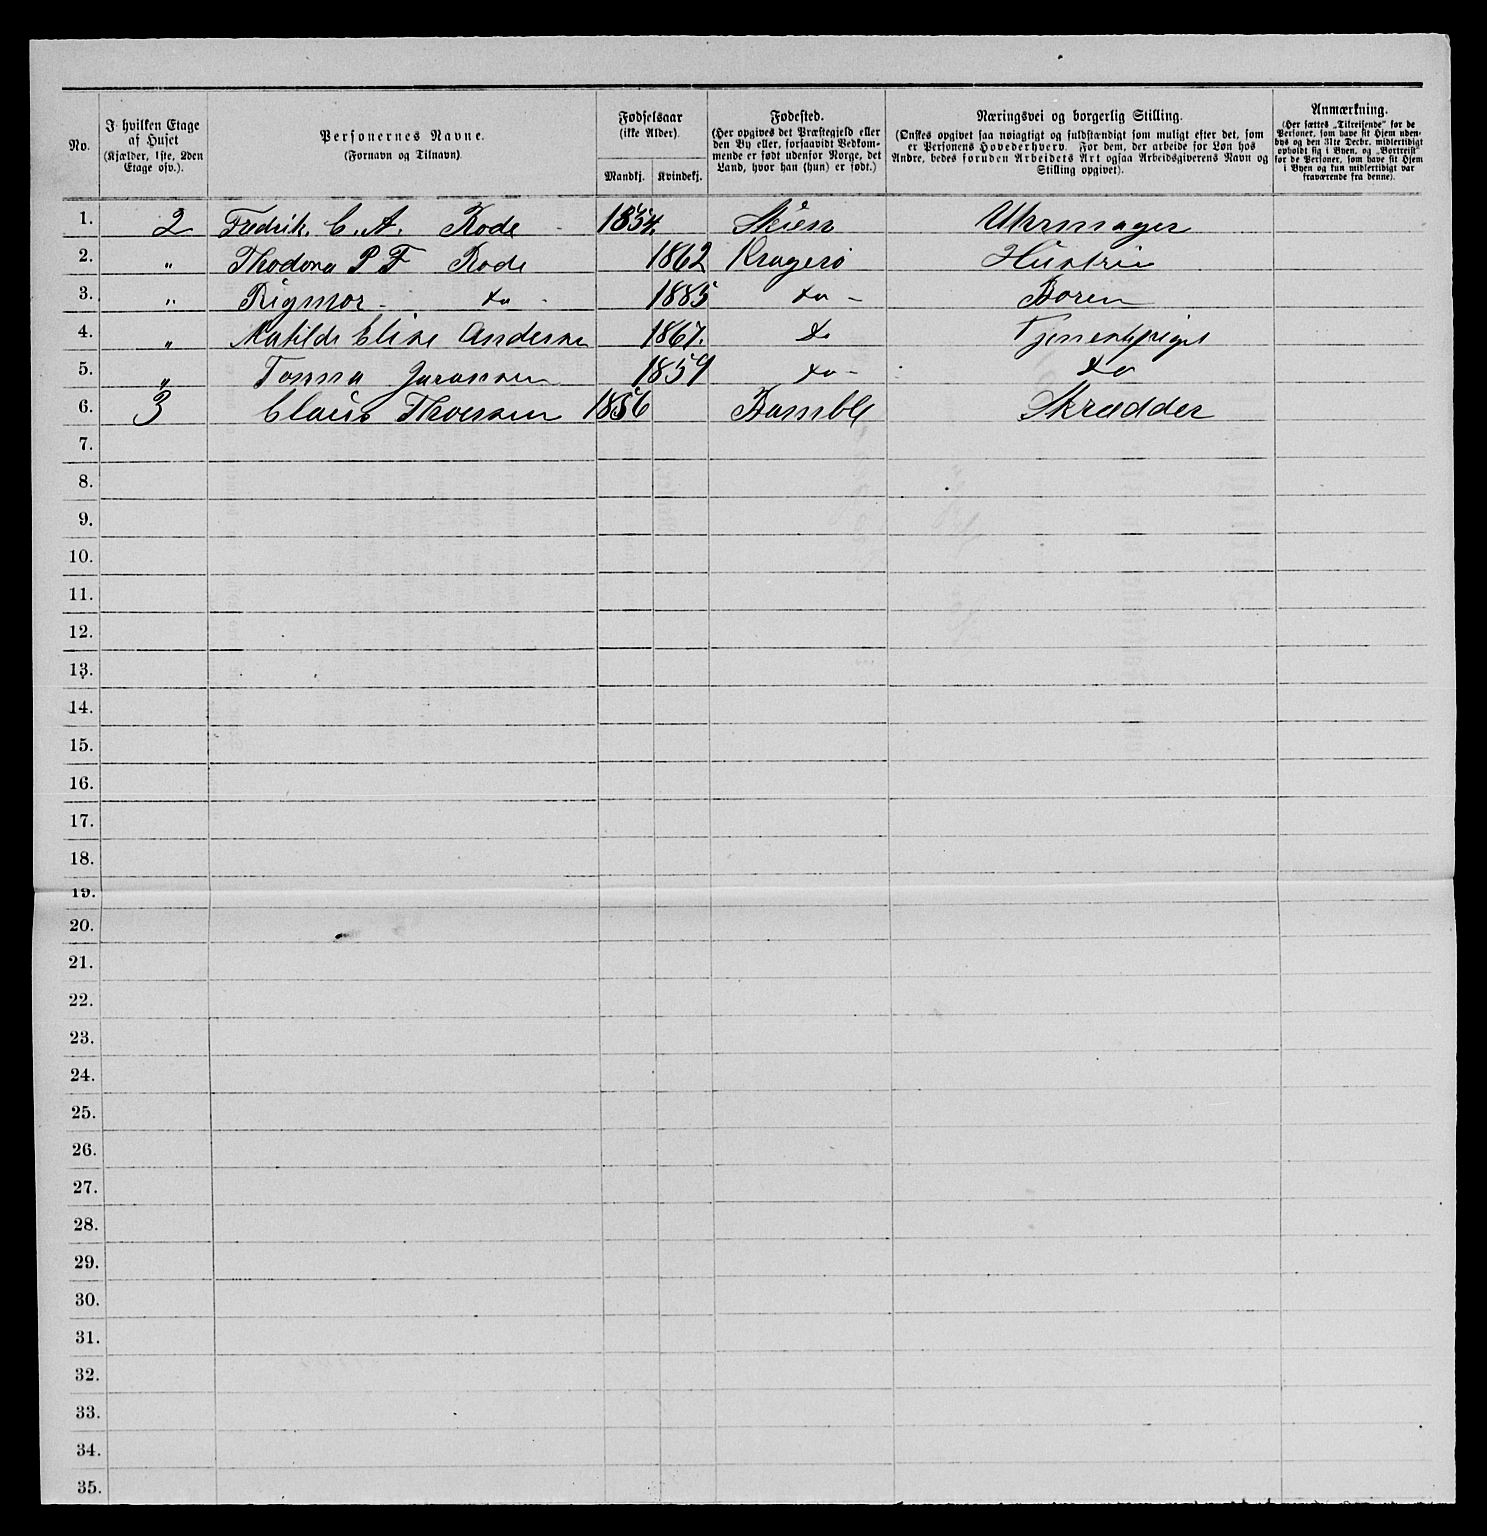 No.
I hvilken Etage
af Huset
(Kjælder, 1ste, 2den
Etage osv.).
Personernes Navne.
(Fornavn og Tilnavn)
Fødselsaar
(ikke Alder).
Mandkj. Kvindekj.
Fødested.
(Her opgives det Præstegjeld eller
den By eller, forsaavidt Vedkom-
mende er født udenfor Norge, det
Land, hvor han (hun) er født.)
Næringsvei og borgerlig Stilling.
(Ønskes opgivet saa nøiagtigt og fuldstændigt som muligt efter det, som
er Personens Hovederhverv. For dem, der arbeide for Løn hos
Andre, bedes foruden Arbeidets Art ogsaa Arbeidsgiverens Navn og
Stilling opgivet).
Anmærkning.
(Her sættes „Tilreisende“ for de
Personer, som have sit Hjem uden-
bys og den 31te Decbr. midlertidigt
opholdt sig i Byen, og „Bortreist“
for de Personer, som have sit Hjem
i Byen og kun midlertidigt var
fraværende fra denne).
1. 2 Fredrik C. A. Rode 1854. Skien Uhrmager
2. " Thodona P F Rode 1862 Kragerø Hustru
3. " Rigmor - do - 1885 do - Barn
4. " Matilde Elise Andersen 1867. do Tjenestepige
5. " Tonna 1859 do - do
6. 3 Claus Thoersen 1856 Bamble Skrædder
7.
8.
9.
10.
11.
12.
13.
14.
15.
16.
17.
18.
19.
20.
21.
22.
23.
24.
25.
26.
27.
28.
29.
30.
31.
32.
33.
34.
35.